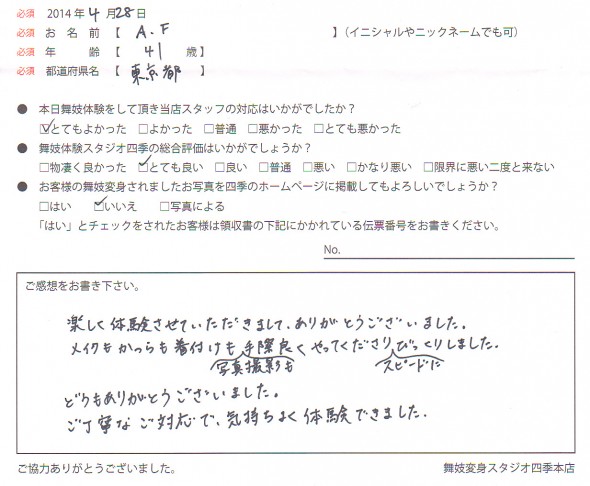 必須 2014年 4月28日
必須 お名前【 A.F 】(イニシャルやニックネームでも可)
必須 年齢【 41 歳】
必須 都道府県名【 東京都 】
● 本日舞妓体験をして頂き当店スタッフの対応はいかがでしたか？
☑とてもよかった □よかった □普通 □悪かった □とても悪かった
● 舞妓体験スタジオ四季の総合評価はいかがでしょうか？
□物凄く良かった ☑とても良い □良い □普通 □悪い □かなり悪い □限界に悪い二度と来ない
● お客様の舞妓変身されましたお写真を四季のホームページに掲載してもよろしいでしょうか？
□はい ☑いいえ □写真による
「はい」とチェックをされたお客様は領収書の下記にかかれている伝票番号をお書きください。
No.
ご感想をお書き下さい。
楽しく体験させていただきまして、ありがとうございました。
メイクもかつらも着付けも手際良くやってくださりびっくりしました。
写真撮影も スピードに
どうもありがとうございました。
ご丁寧なご対応で、気持ちよく体験できました。
ご協力ありがとうございました。 舞妓変身スタジオ四季本店